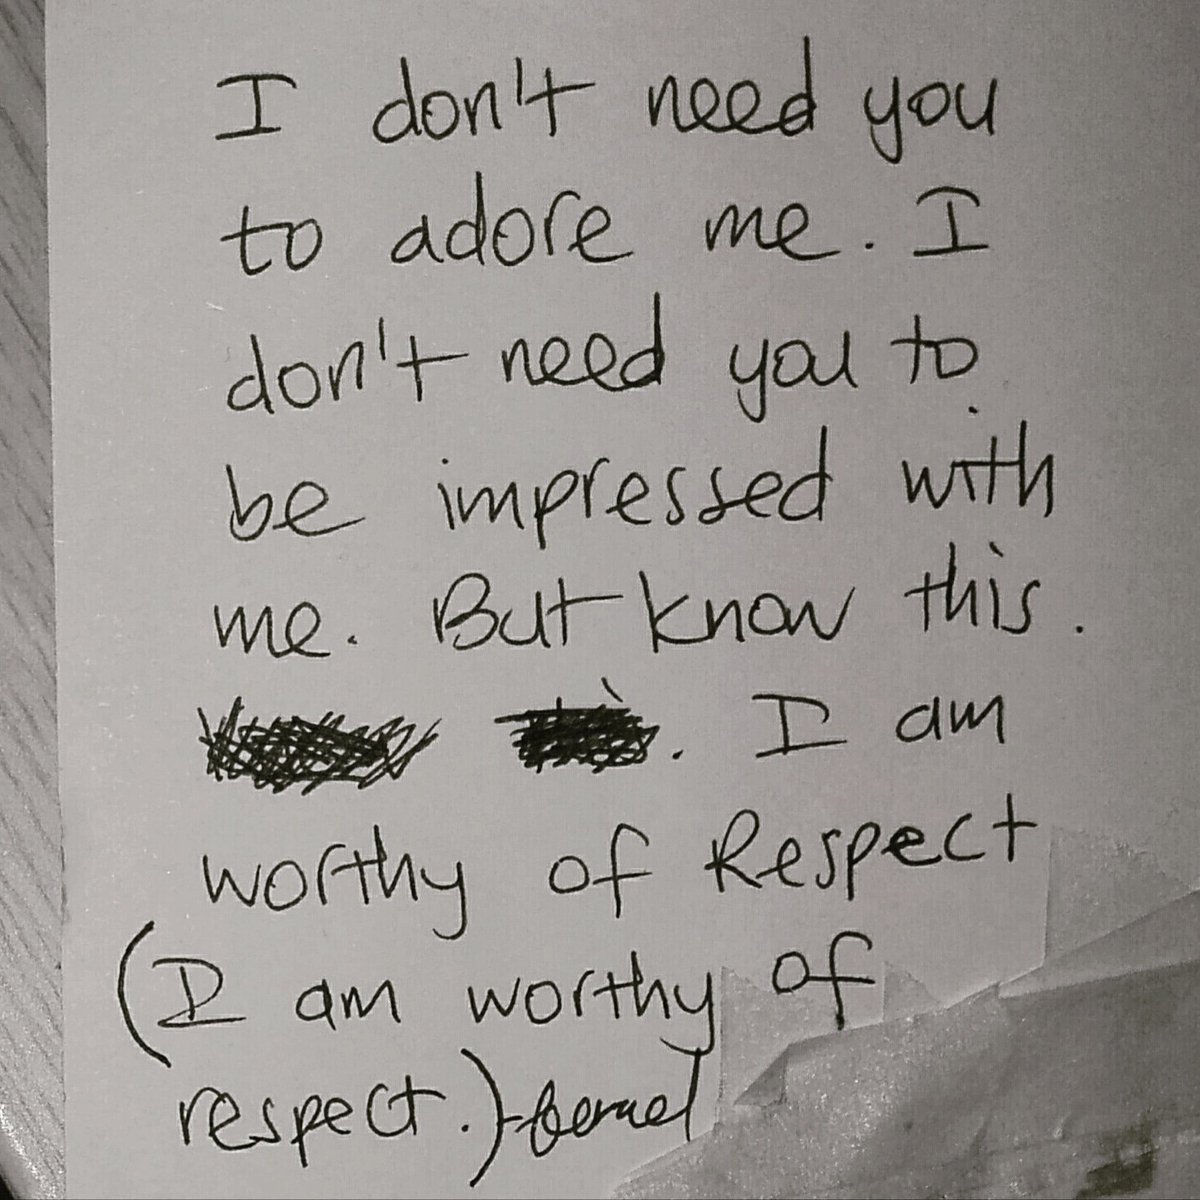 I don't need you
to adore me. I
don't need you to
be impressed with
me. But know this.
. I am
worthy of Respect
(I am worthy of
respect.)